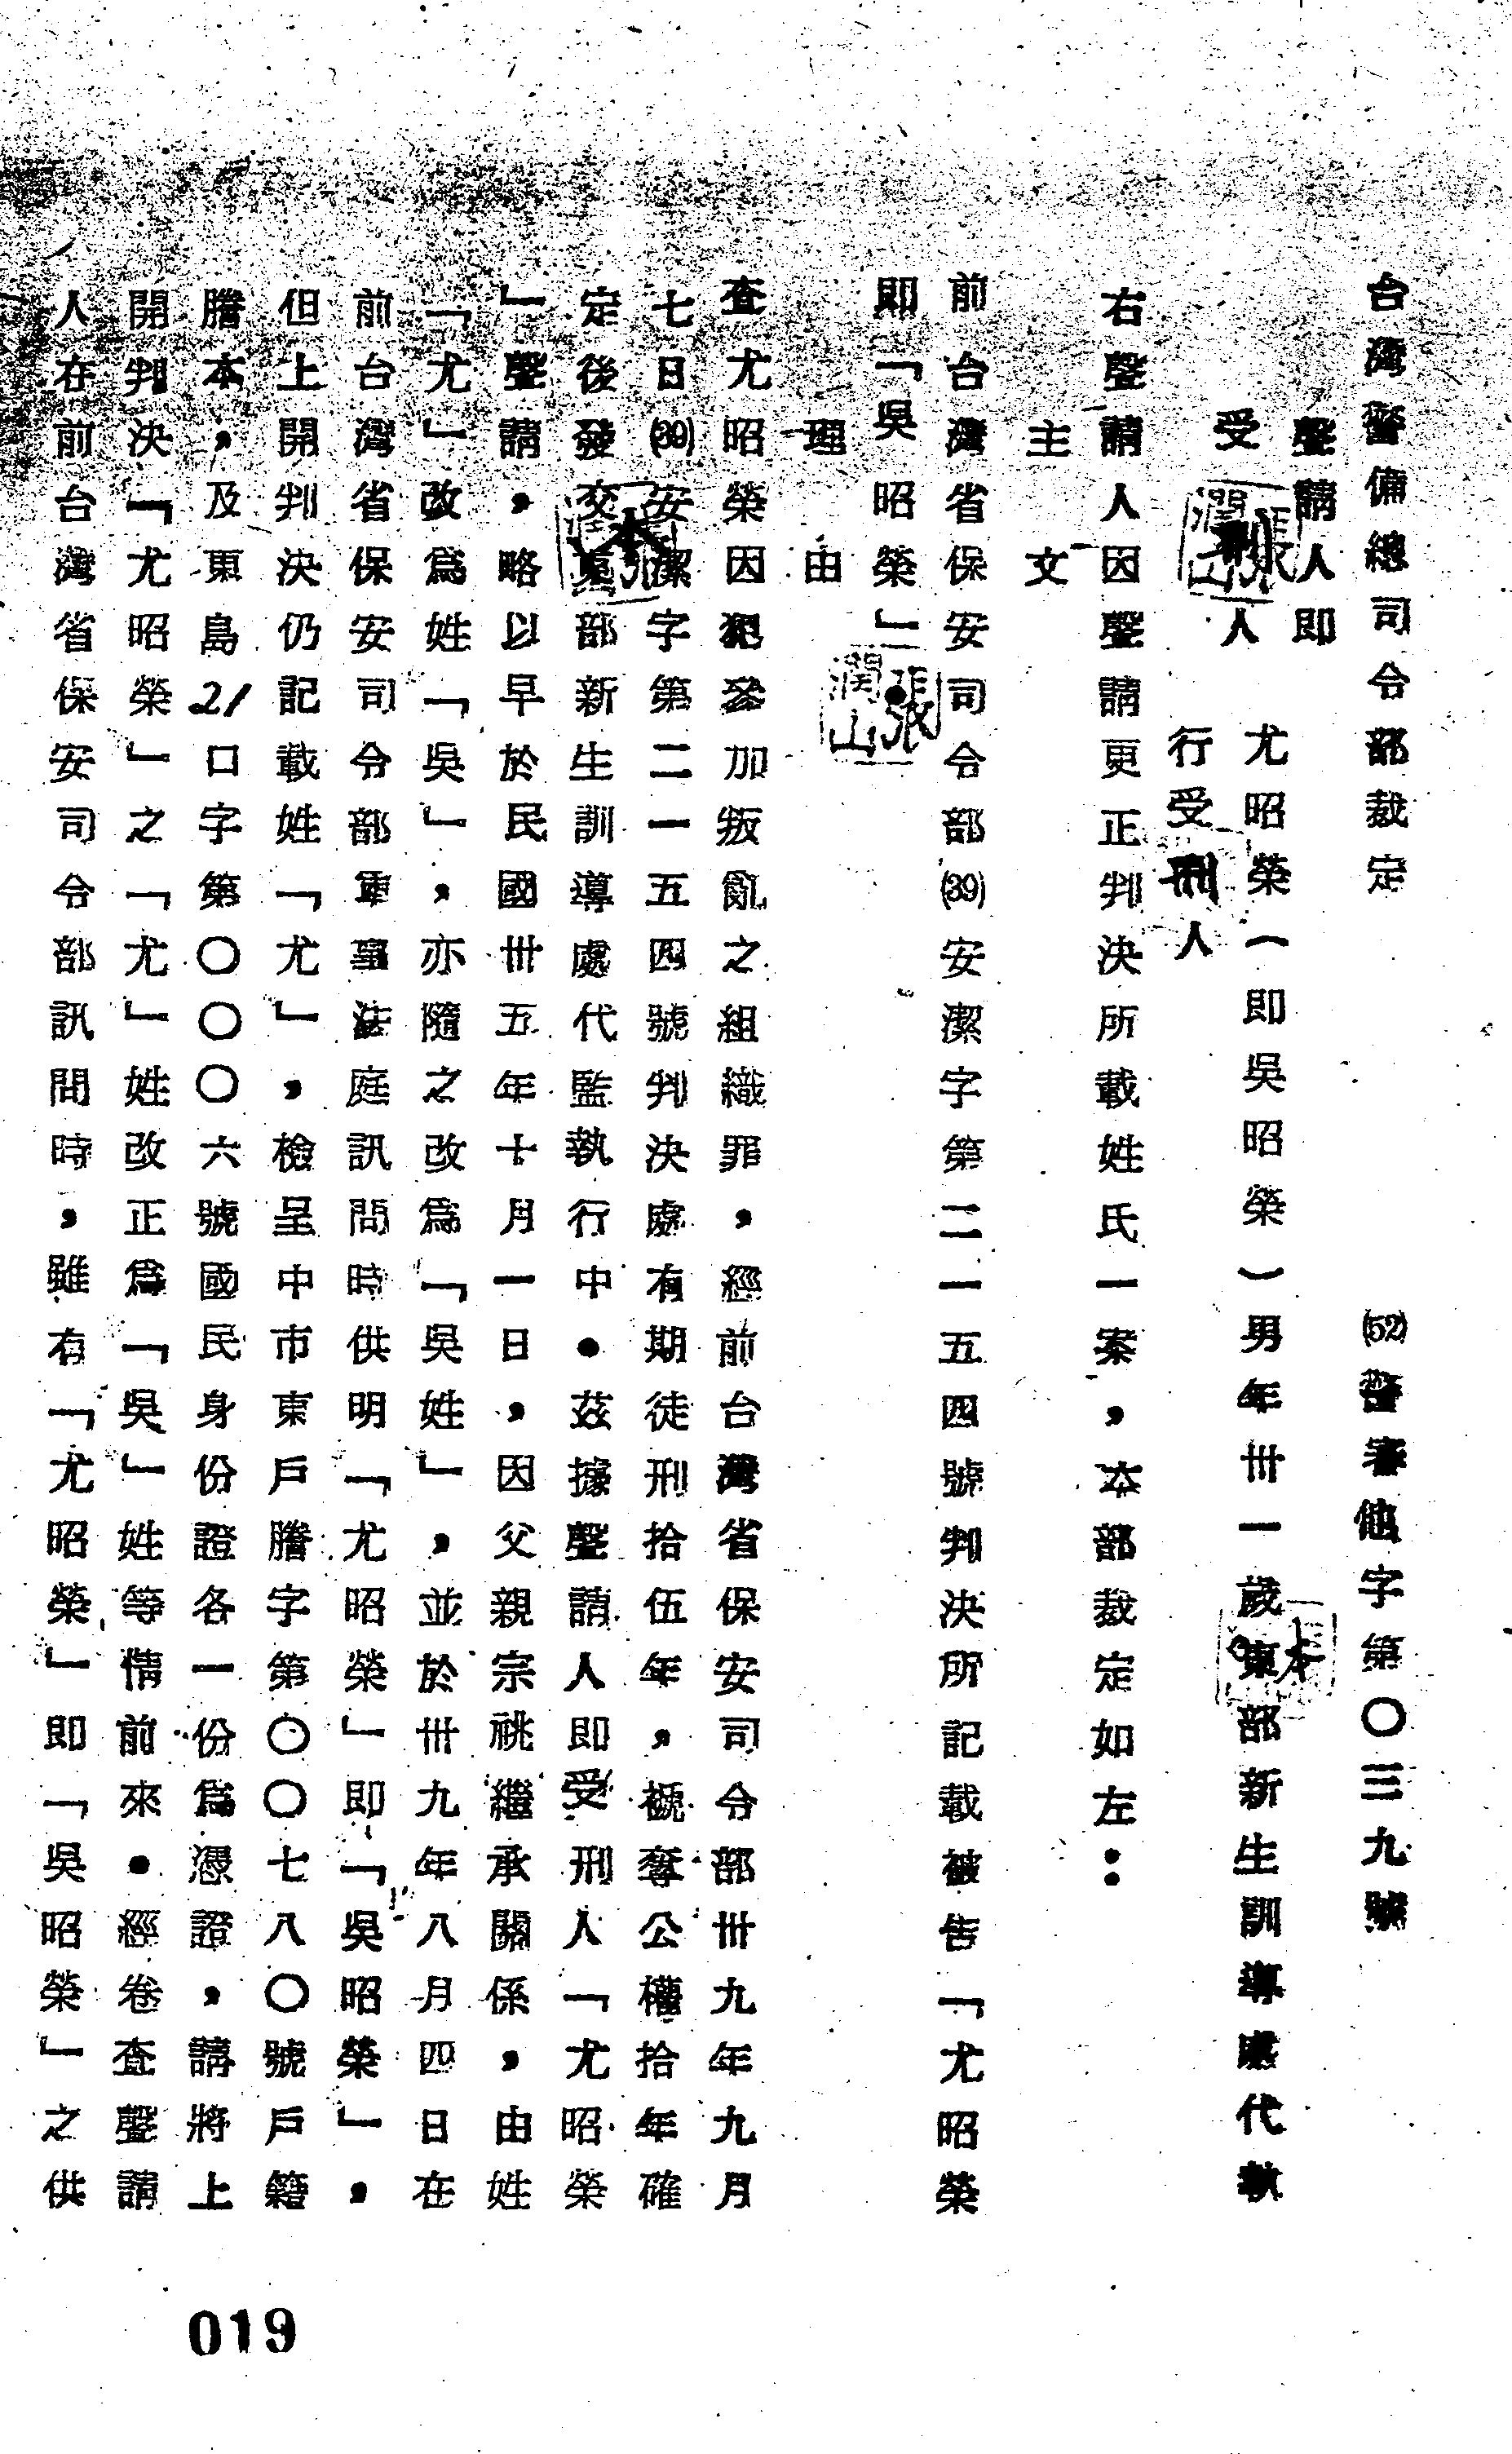 台灣警備總司令部裁定 (52)警審他字第〇三九號
聲請人即
受刑人 尤昭榮(即吳昭榮)男年卅一歲東部新生訓導處代執
行受刑人
右聲請人因聲請更正判決所載姓氏一案，本部裁定如左：
主文
前台灣省保安司令部(39)安潔字第二一五四號判決所記載被告「尤昭榮
即「吳昭榮」。
理由
查尤昭榮因犯參加叛亂之組織罪，經前台灣省保安司令部卅九年九月
七日(39)安潔字第二一五四號判決處有期徒刑拾伍年，褫奪公權拾年確
定後發交本部新生訓導處代監執行中。茲據聲請人即受刑人「尤昭榮
」聲請，略以早於民國卅五年十月一日，因父親宗祧繼承關係，由姓
「尤」改為姓「吳」，亦隨之改為「吳姓」，並於卅九年八月四日在
前台灣省保安司令部軍事法庭訊問時供明「尤昭榮」即「吳昭榮」，
但上開判決仍記載姓「尤」，檢呈中市東戶謄字第〇〇七八〇號戶籍
謄本，及東島21口字第〇〇〇六號國民身份證各一份為憑證，請將上
開判決「尤昭榮」之「尤」姓改正為「吳」姓等情前來。經卷查聲請
人在前台灣省保安司令部訊問時，雖有「尤昭榮」即「吳昭榮」之供
019